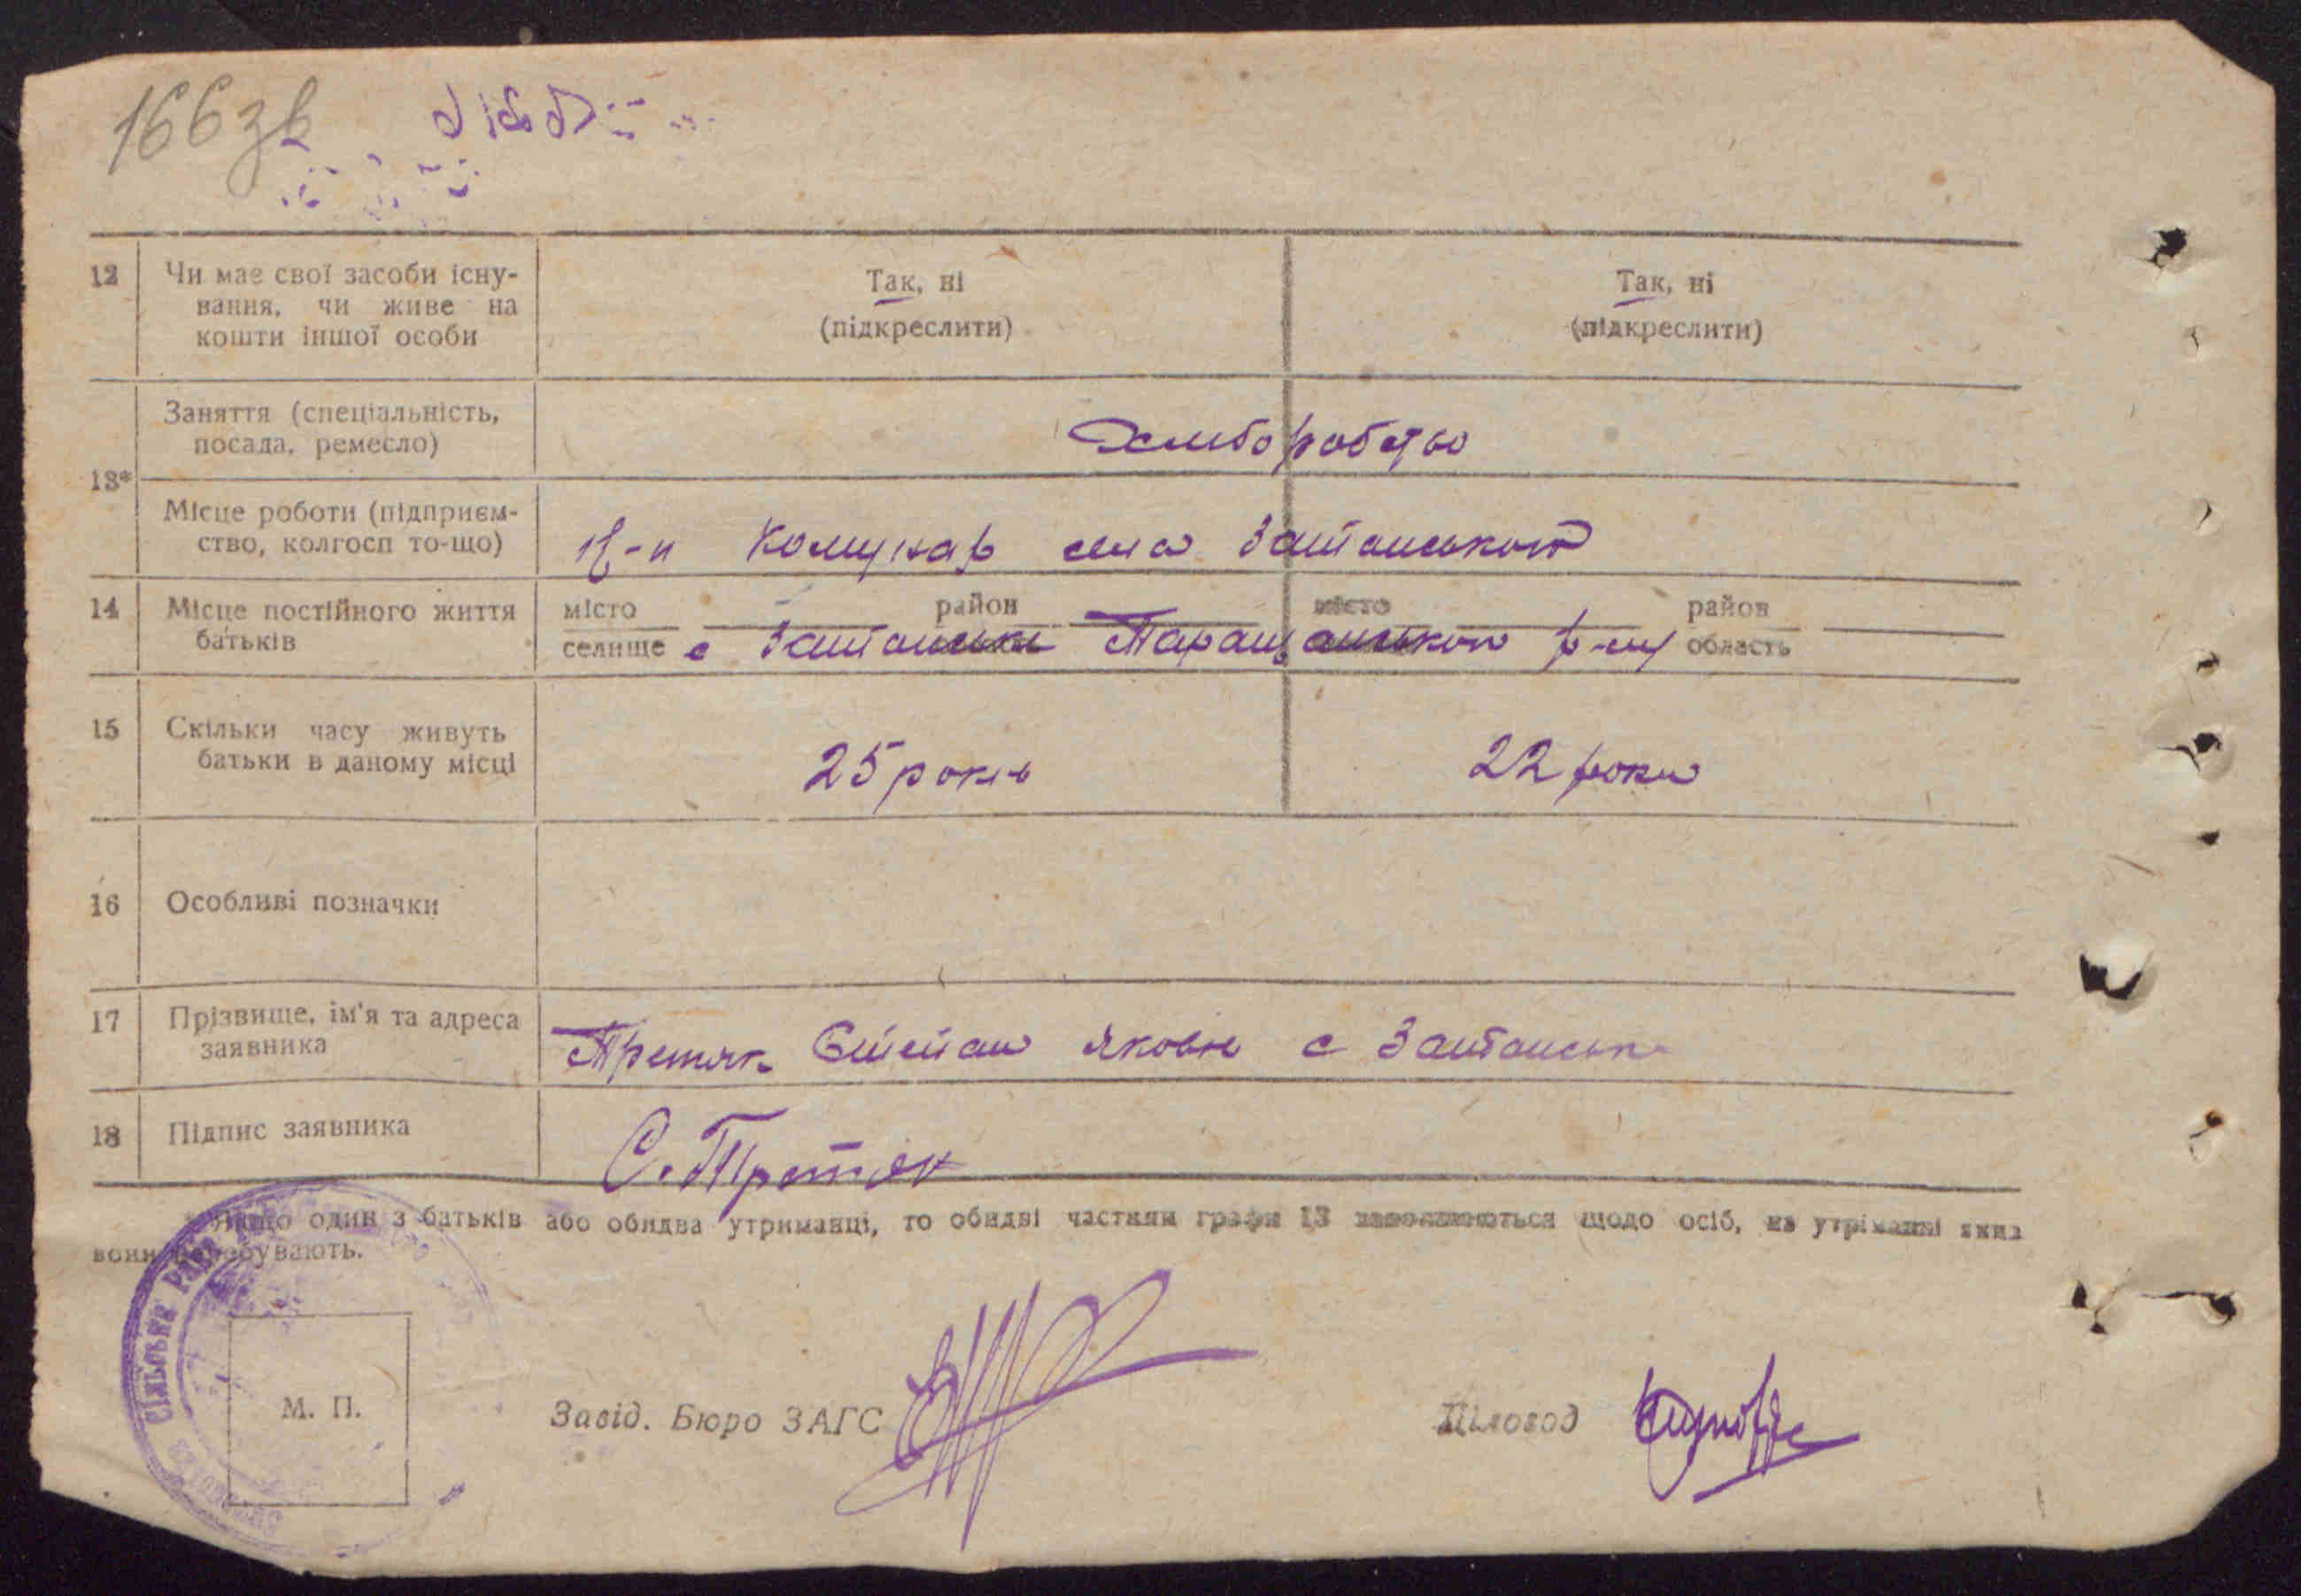 166зв
12 Чи має свої засоби існу-
вання, чи живе на
кошти іншої особи
Так, ні
(підкреслити)
Так, ні
(підкреслити)
13*
Заняття (спеціальність,
посада, ремесло)
Хлиборобство
Місце роботи (підприєм-
ство, колгосп то-що)
Комунар села
14 Місце постійного життя
батьків
місто район місто район
селище с Таращанського р-ну область
15 Скільки часу живуть
батьки в даному місці
25 років
22 роки
16 Особливі позначки
17 Прізвище, ім'я та адреса
заявника
Третяк Степан Яковл с
18 Підпис заявника
С. Третяк
* Якщо один з батьків або обидва утриманці, то обидві частини графи 13 заповнюються щодо осіб, на утриманні яких
вони перебувають.
СІЛЬСЬКА РАДА
М. П.
Завід. Бюро ЗАГС
Діловод